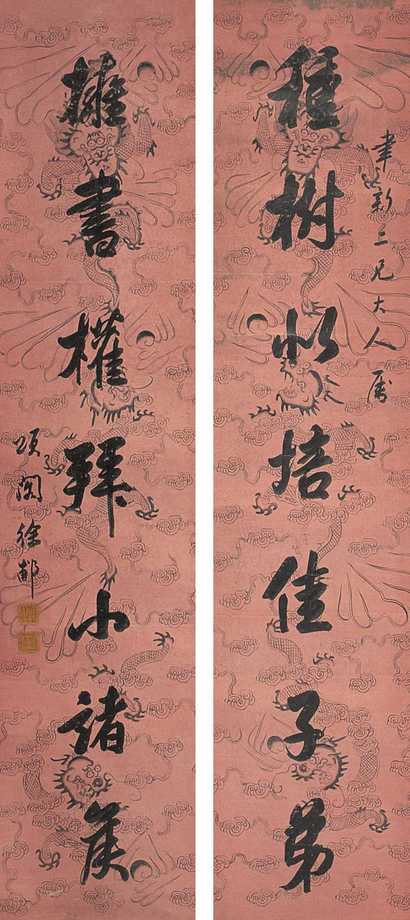 種樹似培佳子弟
二兄大人属
擁書權拜小諸侯
頌閣徐郙